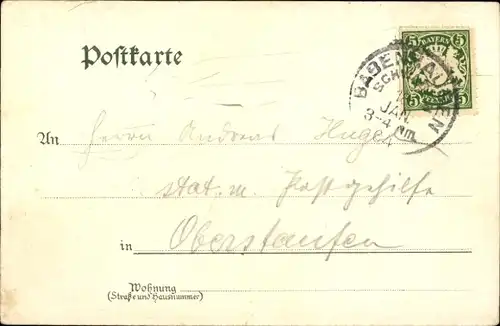 Postkarte
5 BAYERN 5
5 PFENNIG 5
BADENHAUSEN
SCHW
JAN.
3-4 Nm.
An Herrn Andreas Huger
stat. u. Postgehilfe
in Oberstaufen
Wohnung
(Straße und Hausnummer)